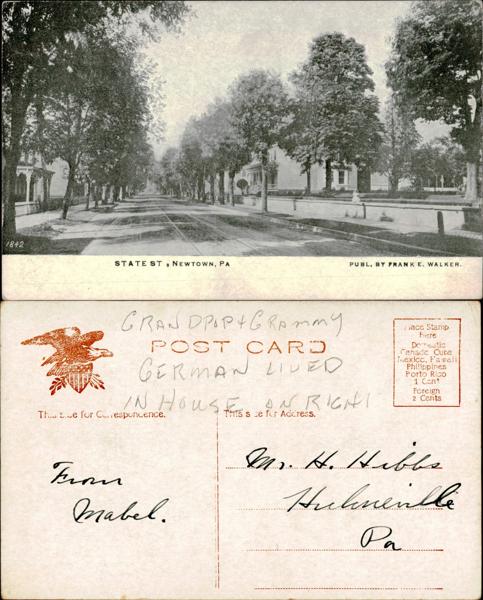 1842
STATE ST., NEWTOWN, PA
PUBL. BY FRANK E. WALKER.
GRANDPOP & GRAMMY
POST CARD
GERMAN LIVED
IN HOUSE ON RIGHT
Place Stamp
Here
Domestic
Canada, Cuba
Mexico, Hawaii
Philippines
Porto Rico
1 Cent
Foreign
2 Cents
This side for Correspondence.
This side for Address.
From
Mabel.
Mr. H. Hibbs
Hulmeville
Pa